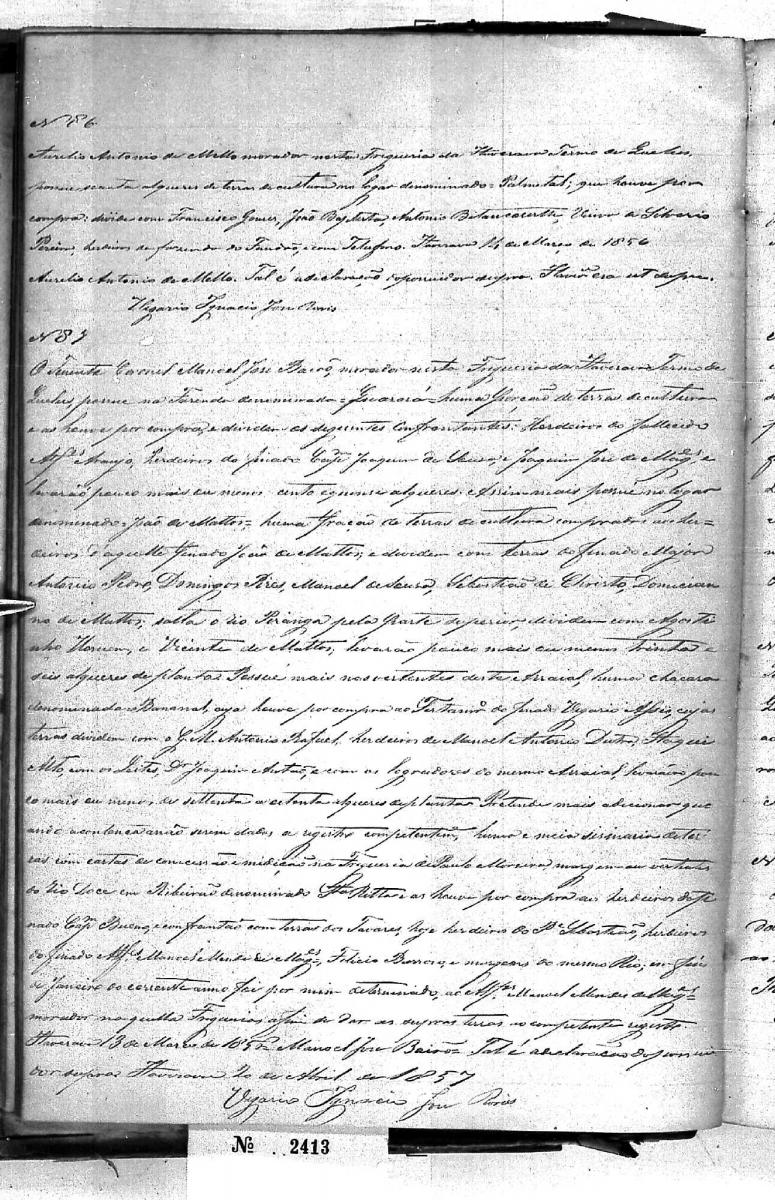 N 86
Aurelio Antonio de Mello morador nesta Freguesia da Itaverava Termo de Queluz,
possue alqueres de terras de cultura no logar denominado = Palmetal; que houve por
compra: divide com Francisco Gomes, João Baptista, Antonio Vieira e Silverio
Pereira, herdeiros da fazenda do Fundão, e com Telesforo. Itaverava 14 de Março de 1856
Aurelio Antonio de Mello. Tal é a declaração do possuidor supra. Itaverava era ut supra.
Vigario Ignacio Jose
N 87
O Tenente Coronel Manoel José Baião, morador nesta Freguesia da Itaverava Termo de
Queluz, possue na Fazenda denominada = Guarará = huma porção de terras de cultura
e as houve por compra, e dividem os seguintes confrontantes: Herdeiros do fallecido
Araujo, herdeiros do finado Capm Joaquim de Souza, e Joaquim José de e
levarão pouco mais ou menos cento e quinse alqueres. Assim mais possue no logar
denominado = João de Mattos = huma fração de terras de cultura comprados aos her-
deiros d'aquelle finado João de Mattos; e dividem com terras do finado Major
Antonio Pedro, Domingos Pires, Manoel de Souza, Sebastião de Christo, Domician
no de Mattos; salta o rio Piranga pela parte superior, dividem com Agosti
nho Homem, e Vicente de Mattos, levarão pouco mais ou menos trinta e
seis alqueres de planta. Possue mais nas vertentes deste Arraial huma chacara
denominada = Bananal, cuja houve por compra ao do finado Vigario Assis, cujas
terras dividem com o G. M. Antonio Rafael, herdeiros de Manoel Antonio Dutra,
Alto, com os Leites, Dr. Joaquim Antão, e com os logradores do mesmo Arraial levarão pou
co mais ou menos de settenta a oitenta alqueres de planta. Pretende mais adicionar que
ando aconteça não serem dadas a registro competente, huma e meia sismaria de ter-
ras com cartas de concessão e medição na Freguesia de Paulo Moreira, margem ou vertentes
do Rio Doce em Ribeirão denominado Sta Ritta e as houve por compra aos herdeiros do fi
nado Capm Bueno, e confrontão com terras dos Tavares, hoje herdeiros do Pe Sebastião, herdeiros
do finado Alfs Manoel Mendes de Felicio Barroso, e margens do mesmo Rio; em
de Janeiro do corrente anno foi por mim determinado, ao Alfs Manoel Mendes de
morador naquella Freguesia afim de dar as supras terras ao competente registro
Itaverava 13 de Março de Manoel José Baião = Tal é a declaração do possui
dor supra. Itaverava 20 de Abril de 1857
Vigario Ignacio Jose
Nº 2413